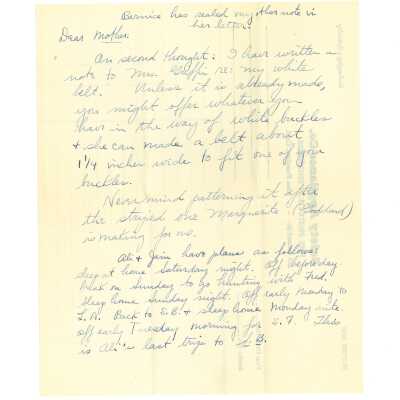 Bernice has sealed my other note in
her letter.
Dear Mother:
On second thought: I have written a
note to Mrs. re: my white
belt. Unless it is already made,
you might offer whatever you
have in the way of white buckles
& she can made a belt about
1¼ inches wide to fit one of your
buckles.
Never mind patterning it after
the striped one Marguerite (Copeland)
is making for me.
Ali & Jim have plans as follows:
sleep at home Saturday night. Off before day-
break on Sunday to go hunting with Fred,
sleep home Sunday night. Off early Monday to
L.A. Back to S.B. & sleep home Monday nite.
Off early Tuesday morning for S.F. Thus
is Ali's last trip to S.B.